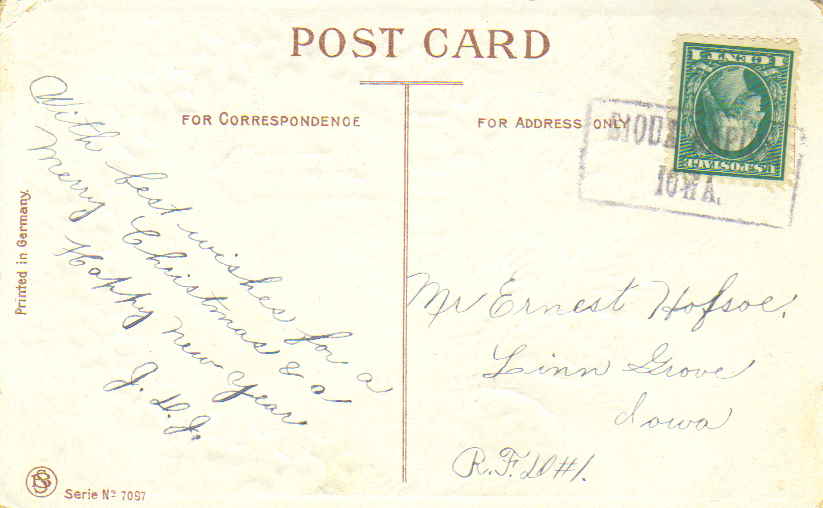 POST CARD
FOR CORRESPONDENCE
FOR ADDRESS ONLY
With best wishes for a
Merry Christmas & a
Happy New Year
J. D. J.
Mr Ernest Hofsoe.
Linn Grove
Iowa
R.F.D #1.
1 CENT 1
U.S. POSTAGE
SIOUX
IOWA.
Printed in Germany.
Serie No 7087